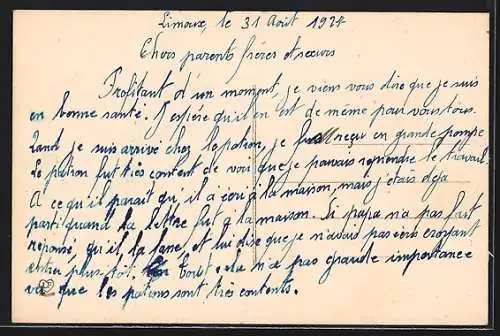 Limoux, le 31 Août 1924
Chers parents frères et sœurs
Profitant d'un moment, je viens vous dire que je suis
en bonne santé. J'espére qu'il en est de même pour vous tous.
Tand je suis arrivé chez le patron, je fut reçu en grande pompe
Le patron fut très content de voir que je pouvais reprendre le travail.
A ce qu'il parait qu'il a écri à la maison, mais j'étais déja
parti quand la lettre fut à la maison. Si papa n'a pas fait
réponse, qu'il la fasse, et lui dise que je n'avais pas écris croyant
entrer plus tot. Tout cela n'a pas grande importance
vu que les patrons sont très contents.